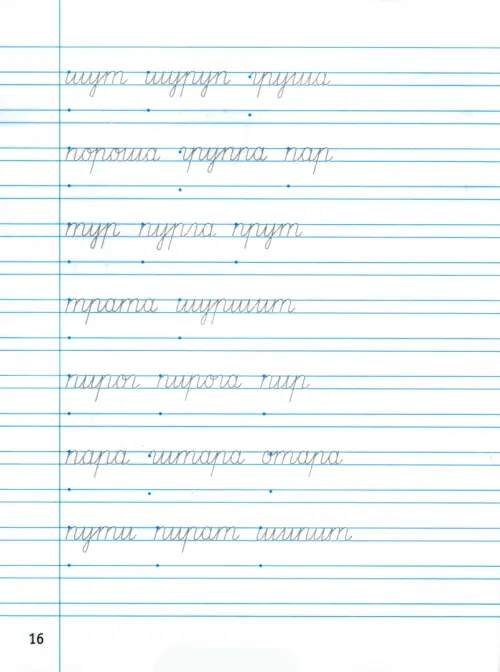 шут шуруп груша
пороша группа пар
тур пурга прут
трата шуршит
пирог пирога пир
пара штара отара
пути пират шипит
16